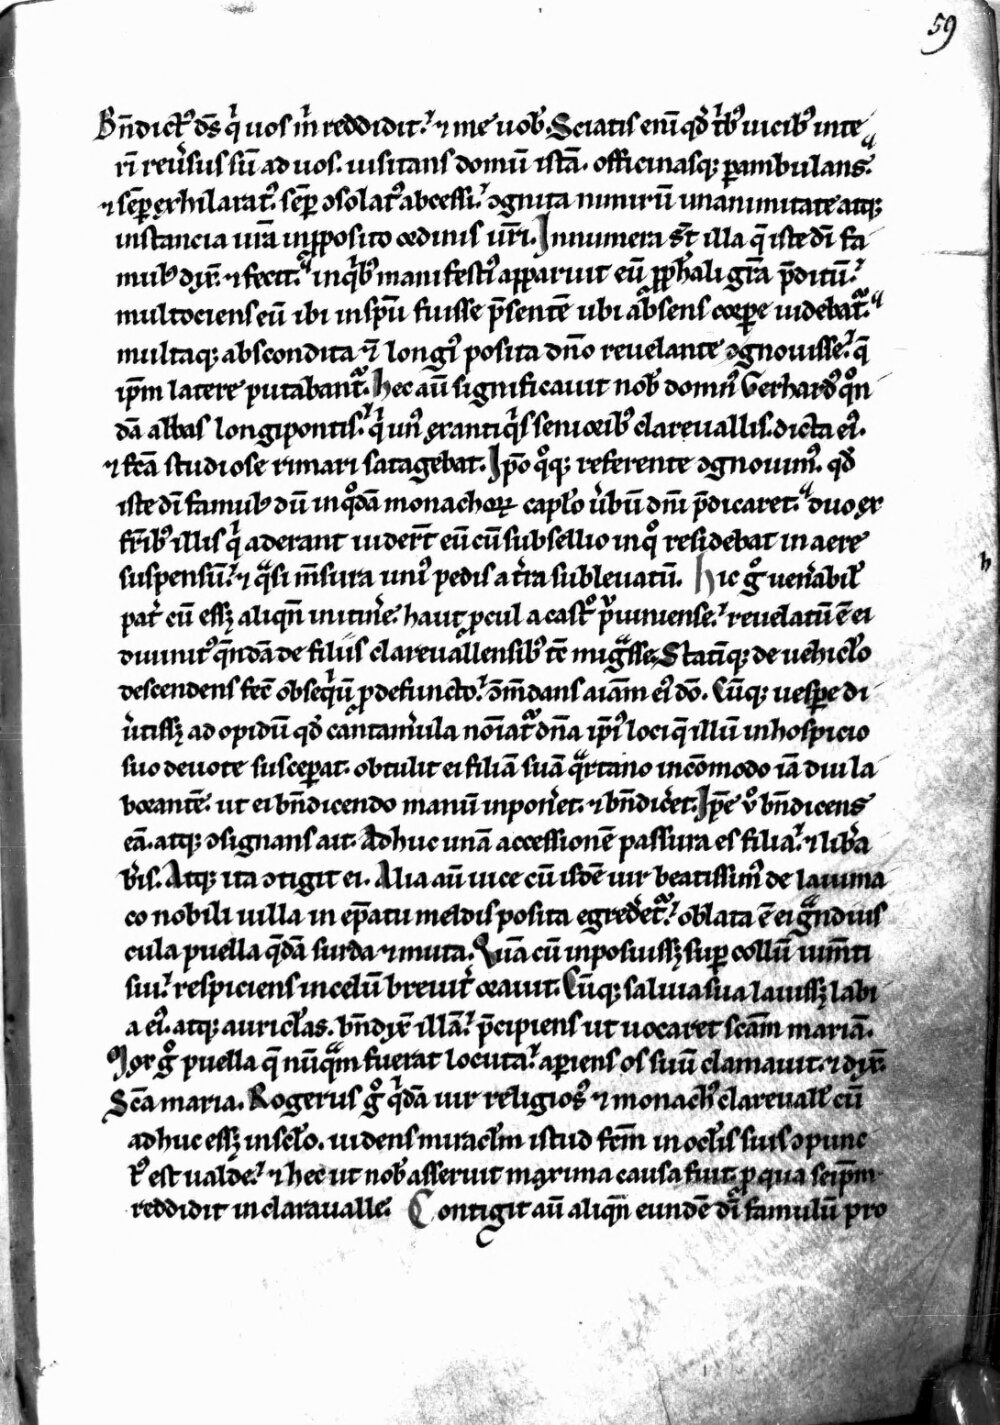 59
Bn̄dict᷒ ds̄ qͥ uos m̄ reddidit.ʼ ⁊ me uob̾. Sciatis eni̅ qd̾ tͥb᷒ uicib᷒ inte
rī reu̾sus su̅ ad uos. uisitans domu̅ ista̅. officinasq; ꝑambulans.
⁊ se̅ꝑ exhilarat᷒. se̅ꝑ ꝯsolat᷒ abcessi.ʼ ꝯgnita nimiru̅ unanimitate atq;
instancia ur̅a in ꝓposito ordinis ur̅i. Innumera st̅ illa q̅ iste di̅ fa
mul᷒ dix̅. ⁊ fecit. in qͥb᷒ manifesti᷒ apparuit eu̅ ꝓph̅ali gr̅a p̅ditu̅.ʼ
multociens eu̅ ibi in sp̅u fuisse p̅sente̅ ubi absens corꝑe uidebatᷣ.
multaq; abscondita ⁊ longi᷒ posita dn̅o reuelante ꝯgnouisse.ʼ q̅
ip̅m latere putabantᷣ. Hec au̅ significauit nob̾ domn᷒ Gerhard᷒ qͦn
da̅ abbas longipontis.ʼ qͥ un᷒ ex antiqͥs seniorib᷒ clareuallis. dicta ei᷒.
⁊ fc̅a studiose rimari satagebat. Ip̅o qͦq; referente ꝯgnouim᷒. qd̾
iste di̅ famul᷒ du̅ in qͦda̅ monachoꝝ cap̅lo u̾bu̅ dn̅i p̅dicaret. duo ex
fr̅ib᷒ illis qͥ aderant uider̅t eu̅ cu̅ subsellio in qͦ residebat in aere
suspensu̅.ʼ ⁊ qᷓsi m̅sura uni᷒ pedis a t̾ra subleuatu̅. Hic gͦ uen̾abil̾
pat̾ cu̅ ess; aliqn̅ in itin̾e. haut ꝓcul a castͦ pͥuiniense.ʼ reuelatu̅ e̅ ei
diuinit᷒ qn̅da̅ de filiis clareuallensib᷒ tc̅ migᷓsse. Statīq; de uehic̅lo
descendens fec̅ obseqͥu̅ ꝓ defuncto.ʼ ꝯm̅dans ai̅am ei᷒ do̅. Cu̅q; uesꝑe di
u̾tiss; ad opidu̅ qd̾ cantam̾ula noi̅atᷣ. dn̅a ip̅i᷒ loci q̅ illu̅ in hospicio
suo deuote susceꝑat. obtulit ei filia̅ sua̅ qᷓrtano inco̅modo ia̅ diu la
borante̅. ut ei bn̅dicendo manu̅ inpon̾et. ⁊ bn̅dic̾et. Ip̅e uͦ bn̅dicens
ea̅. atq; ꝯsignans ait. Adhuc una̅ accessione̅ passura es filia.ʼ ⁊ lib̾a
b̾is. Atq; ita ꝯtigit ei. Alia au̅ uice cu̅ isde̅ uir beatissim᷒ de lauima
co nobili uilla in ep̅atu meldis posita egred̾etᷣ.ʼ oblata e̅ ei gᷓndius
cula puella q̅da̅ surda ⁊ muta. Qua̅ cu̅ inposuiss; suꝑ collu̅ ium̅ti
sui.ʼ respiciens in celu̅ breuit̾ orauit. Cu̅q; saliua sua lauiss; labi
a ei᷒. atq; auric̅las. bn̅dix̅ illa̅.ʼ p̅cipiens ut uocaret sc̅am maria̅.
Mox gͦ puella q̅ nu̅qᷓm fuerat locuta.ʼ aꝑiens os suu̅ clamauit. ⁊ dix̅.
Sc̅a maria. Rogerus gͦ qͥda̅ uir religios᷒ ⁊ monach᷒ clareuall̾ cu̅
adhuc ess; in sc̅lo. uidens mirac̅lm istud fc̅m in oc̅lis suis ꝯpunc
t᷒ est ualde.ʼ ⁊ hec ut nob̾ asseruit maxima causa fuit. ꝓ qua seip̅m
reddidit in claraualle. Contigit au̅ aliqn̅ eunde̅ di̅ famulu̅ pro